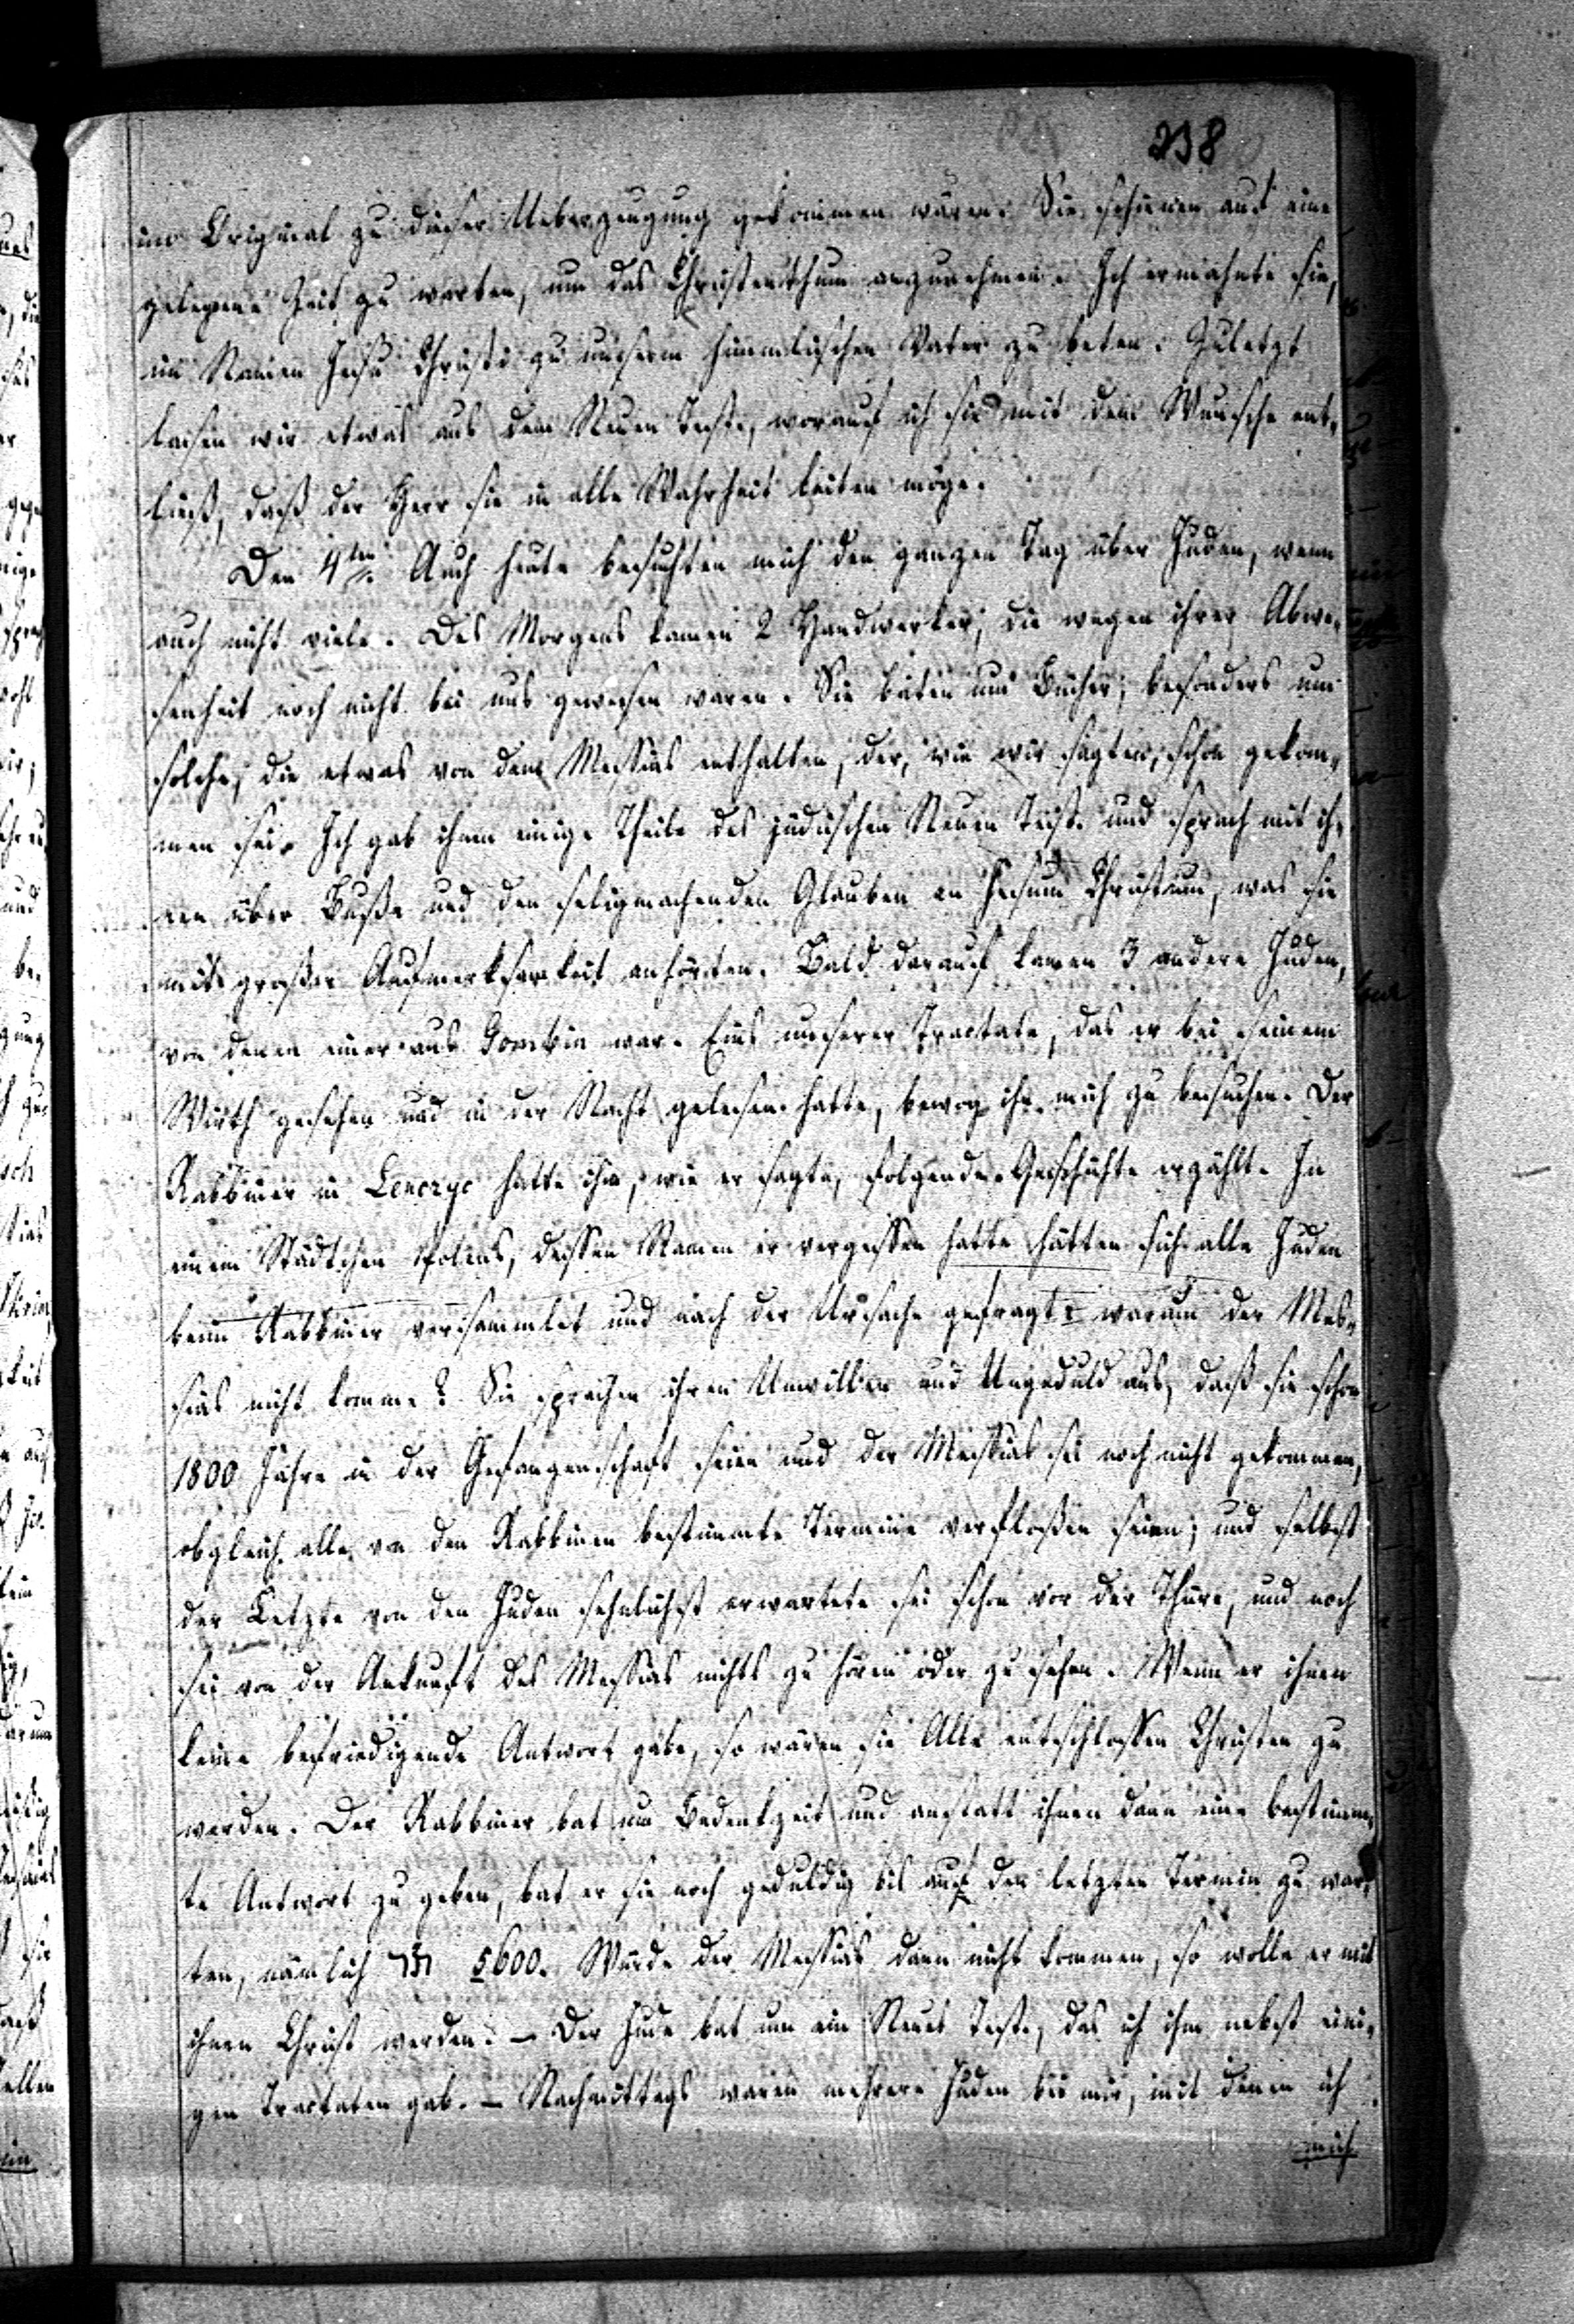 238
im Original zu dieser Ueberzeugung gekommen wären. Sie schienen auf eine
gelegene Zeit zu warten, um das Christenthum anzunehmen. Ich ermahnte sie,
im Namen Jesu Christi zu unserm himmlischen Vater zu beten. Zuletzt
lasen wir etwas aus dem Neuen Test., worauf ich sie mit dem Wunsche ent-
ließ, daß der Herr sie in alle Wahrheit leiten möge.
Den 4ten. Auch heute besuchten mich den ganzen Tag über Juden, wenn
auch nicht viele. Des Morgens kamen 2 Handwerker, die wegen ihrer Abwe-
senheit noch nicht bei uns gewesen waren. Sie baten um Bücher, besonders um
solche, die etwas von dem Messias enthalten, der, wie wir sagten, schon gekom-
men sei. Ich gab ihnen einige Theile des jüdischen Neuen Test. und sprach mit ih-
nen über Buße und den seligmachenden Glauben an Jesum Christum, was sie
mit großer Aufmerksamkeit anhörten. Bald darauf kamen 3 andere Juden,
von denen einer aus Gombin war. Eins unserer Tractate, das er bei seinem
Wirth gesehen und in der Nacht gelesen hatte, bewog ihn mich zu besuchen. Der
Rabbiner in Lenczyc hatte ihm, wie er sagte, folgende Geschichte erzählt. In
einem Städtchen Polens, dessen Namen er vergessen hatte hätten sich alle Juden
beim Rabbiner versammlet und nach der Ursache gefragt: warum der Mes-
sias nicht komme? Sie sprachen ihren Unwillen und Ungeduld aus, daß sie schon
1800 Jahre in der Gefangenschaft seien und der Messias sei noch nicht gekommen,
obgleich alle von den Rabbinen bestimmte Termine verfloßen seien; und selbst
der Letzte von den Juden sehnlichst erwartete sei schon vor der Thüre, und noch
sei von der Ankunft des Messias nichts zu hören oder zu sehen. Wenn er ihnen
keine befriedigende Antwort gäbe, so wären sie Alle entschlossen Christen zu
werden. Der Rabbiner bat um Bedenkzeit und anstatt ihnen dann eine bestimm-
te Antwort zu geben, bat er sie noch geduldig bis auf den letzten Termin zu war-
ten, nämlich 5600. Würde der Messias dann nicht kommen, so wolle er mit
ihnen Christ werden. – Der Jude bat um ein Neues Test., das ich ihm nebst eini-
gen Tractaten gab. – Nachmittags waren mehrere Juden bei mir, mit denen ich
mich